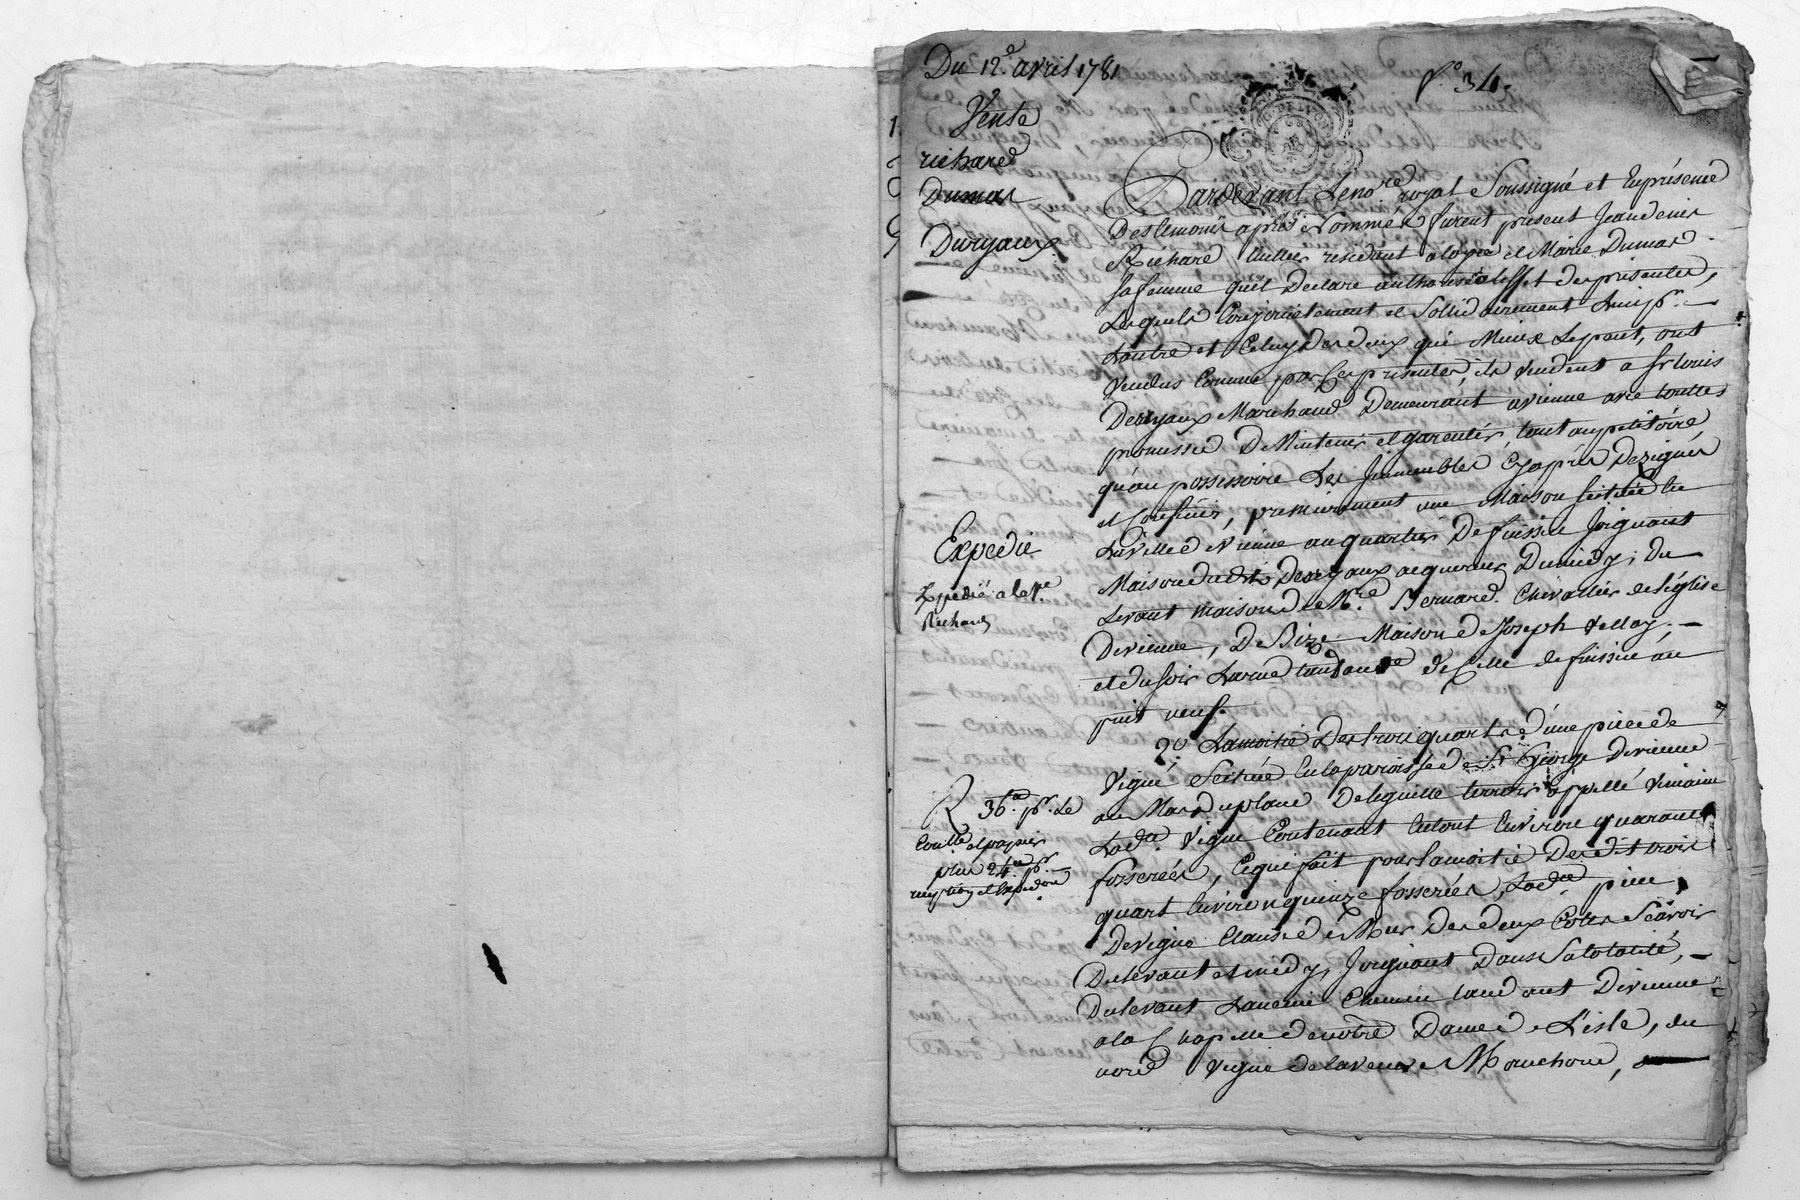 Du 12e avril 1781
f.o 34.
Vente
richard
Dumas
Duryaux
Pardevant Le no.re royal Soussigné et En présence
Des temoins apres Nommés furent present Jean denis
Richard Cullier residant a la pie et Marie Dumas
Sa femme quil Declare authorisée a leffet des presentes,
Lesquels Conjointement et Sollidairement Lun pr.
Lautre et Celuy des deux qui Mieux Le peut, ont
Vendus Comme par Ces presentes, ils Vendent a Sr louis
Duryaux Marchand Demeurant a vienne avec touttes
promesse De Maintenir et garentir, tant au petitoire
qu'au possessoire Les Immeubles Cy apres Dezignés
et Confinés, premierement une Maison scituée En
La Ville de Vienne au quartier De fuissin Joignant
Maison dudit Duryaux acquereur Du midy; du
Levant Maison de Mr. Bernard Chevallier de l'église
De vienne, De Bize Maison de Joseph Vellay,
et du soir La rue tendante de Celle de fuissin au
puit neuf.
Expedié
Expedié a la Ve.
Richard
2.o La moitié Des trois quarts d'une piece de
Vigne Scituée En la paroisse de St George De vienne
au Mas du plan De leguille terroir appellé Vimaine
Lad.te Vigne Contenant En tout Environ quarante
fosserées, Ce qui fait pour la moitié Desdit trois
quart Environ quinze fosserées, Lad.te piece
De vigne Clause de Mur Des deux Cotes Scavoir
Du levant et midy, Joignant Dans Sa totalité,
Du levant Lancien Chemin tendant De vienne
a la Chapelle de notre Dame de L'isle, du
nord Vigne de la veuve Mouchon,
R 36.s pr. Le
Con.lle et papier
plus 24.s pr.
reception et Expedon